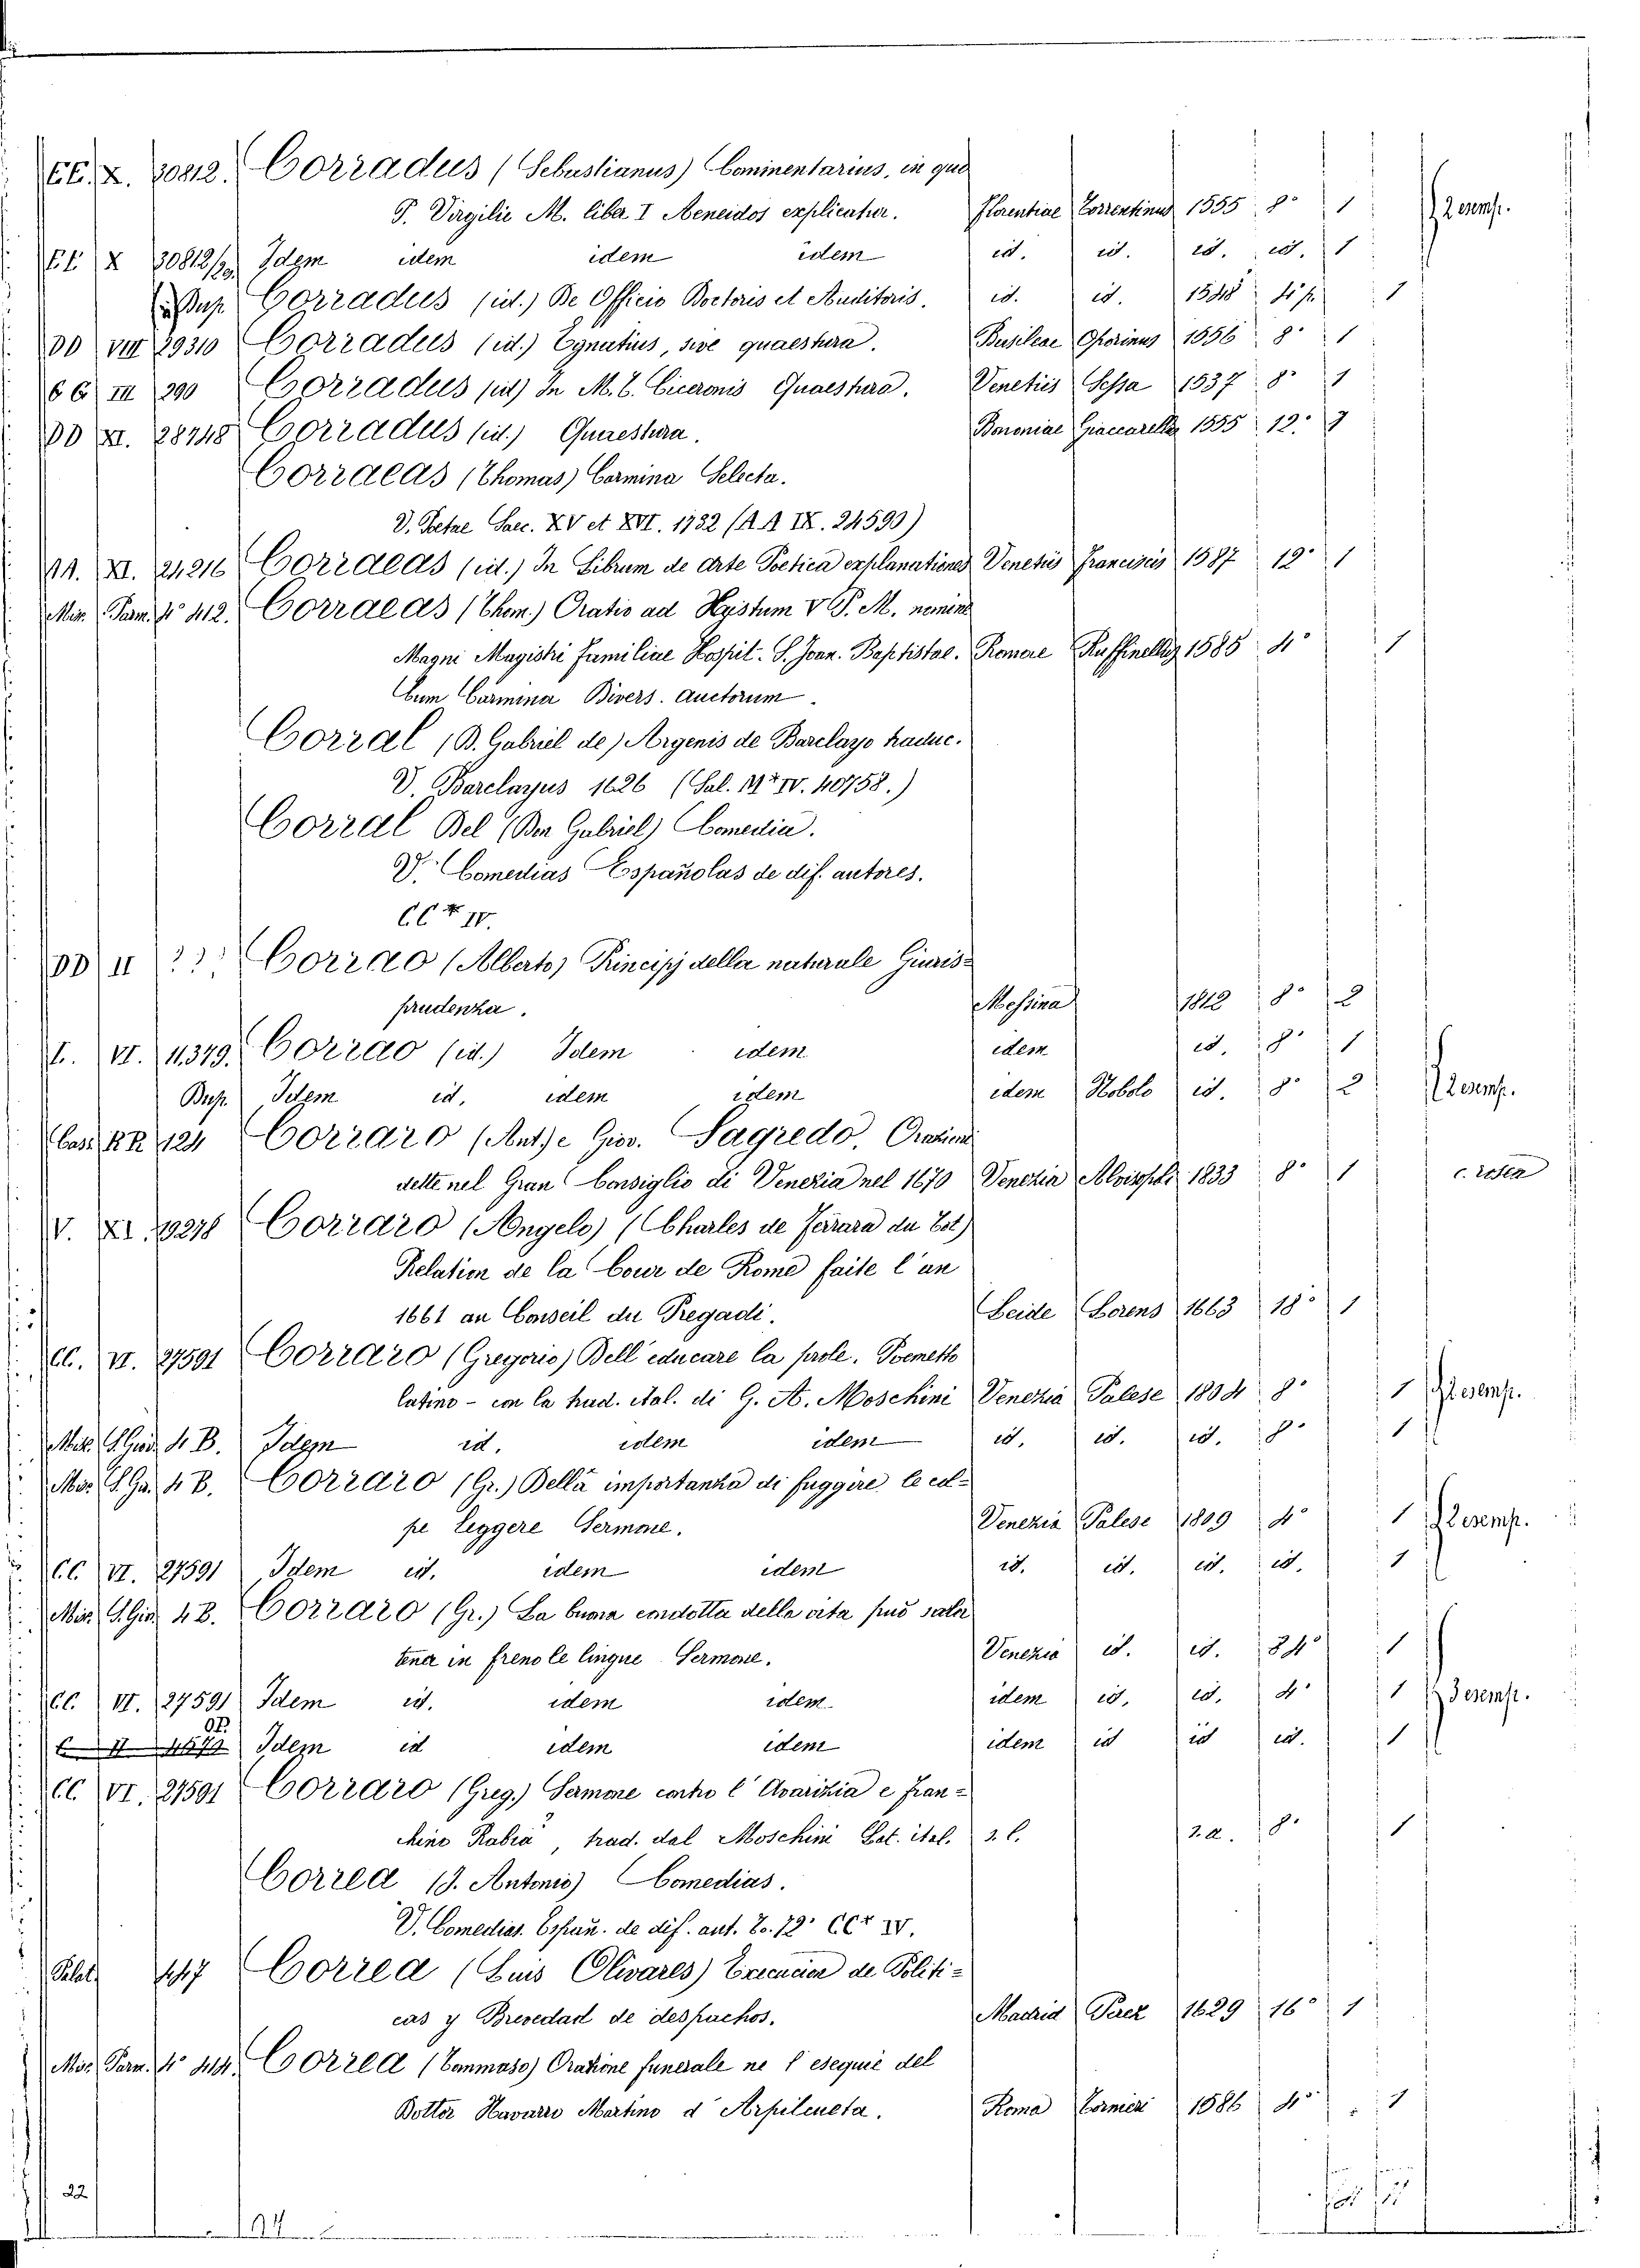 CC. X. 30812. Corradus (Sebastianus) Commentarius, in quo
P. Virgilii M. liber I Aeneidos explicatur. Florentiae Torrentinus 1555 8° 1 2 esemp.
CC X 30812/2 Idem idem idem idem id. id. id. id. 1
Corradus (id.) De Officio Doctoris et Auditoris. id. id. 1548 4° p. 1
DD VIII 29310 Corradus (id.) Egnatius, sive quaestura. Basileae Oporinus 1556 8° 1
66 III 290 Corradus (id) In M. T. Ciceronis Quaestura. Venetiis Sessa 1537 8° 1
DD XI. 28748 Corradus (id.) Quaestura. Bononiae Giaccarelli 1555 12°
Correas (Thomas) Carmina Selecta.
V. Poetae Saec. XV et XVI. 1732 (A A IX. 24590)
AA. XI. 24216 Correas (id.) In Librum de Arte Poetica explanationes Venetiis Franciscis 1587 12° 1
Mis. Pam. 4° 412. Correas (Thom.) Oratio ad Xystum V P. M. nomine
Magni Magistri familiae Hospit. S. Joan. Baptistae. Romae Ruffinelli 1585 4° 1
Cum Carmina Divers. Auctorum.
Corral (D. Gabriel de) Argenis de Barclayo traduc.
V. Barclayus 1626 (Sal. IV. 40758.)
Corral Del (Don Gabriel) Comedia.
V. Comedias Españolas de dif. autores.
CC * IV.
DD II ??? Corrao (Alberto) Principj della naturale Giuris=
prudenza. Messina 1812 8° 2
L. VI. 11379. Corrao (id.) Idem idem idem id. 8° 1
Dup. Idem id. idem idem idem Nobolo id. 8° 2 2 esemp.
Cas. RR 124 Corraro (Ant.) e Giov. Sagredo, Orazioni
dette nel Gran Consiglio di Venezia nel 1670 Venezia Alvisopoli 1833 8° 1
V. XI. 19278 Corraro (Angelo) (Charles de Ferrara du Bot)
Relation de la Cour de Rome faite l'an
1661 au Conseil du Pregadi. Leide Lorens 1663 18° 1
CC. VI. 27591 Corraro (Gregorio) Dell'educare la prole. Poemetto
latino - con la trad. ital. di G. A. Moschini Venezia Palese 1804 8° 1 esemp.
4 B. Idem id. idem idem id. id. id. 8° 1
4 B. Corraro (Gr.) Della importanza di fuggire le col=
pe leggere Sermone. Venezia Palese 1809 4° 1 2 esemp.
CC VI. 27591 Idem id. idem idem id. id. id. id. 1
4 B. Corraro (Gr.) La buona condotta della vita può saler
tener in freno le lingue Sermone. Venezia id. id. 84° 1
CC. VI. 27591 Idem id. idem idem idem id. id. 4° 1 3 esemp.
Idem id idem idem idem id id id. 1
CC VI. 27591 Corraro (Greg.) Sermone contro l'Avarizia e fran=
chino Rabia, trad. dal Moschini Lat. ital. s. l. s. a. 8° 1
Correa (J. Antonio) Comedias.
V. Comedias. Españ. de dif. aut. To. 12° CC* IV.
Palat 447 Correa (Luis Olivares) Execucion de Politi=
cas y Brevedad de despachos. Madrid Perez 1629 16° 1
Mis. Pam. 4° 414. Correa (Tommaso) Orazione funerale ne l'esequie del
Dottor Navarro Martino d'Arpilcueta. Roma Tornieri 1586 4° 1
22
194